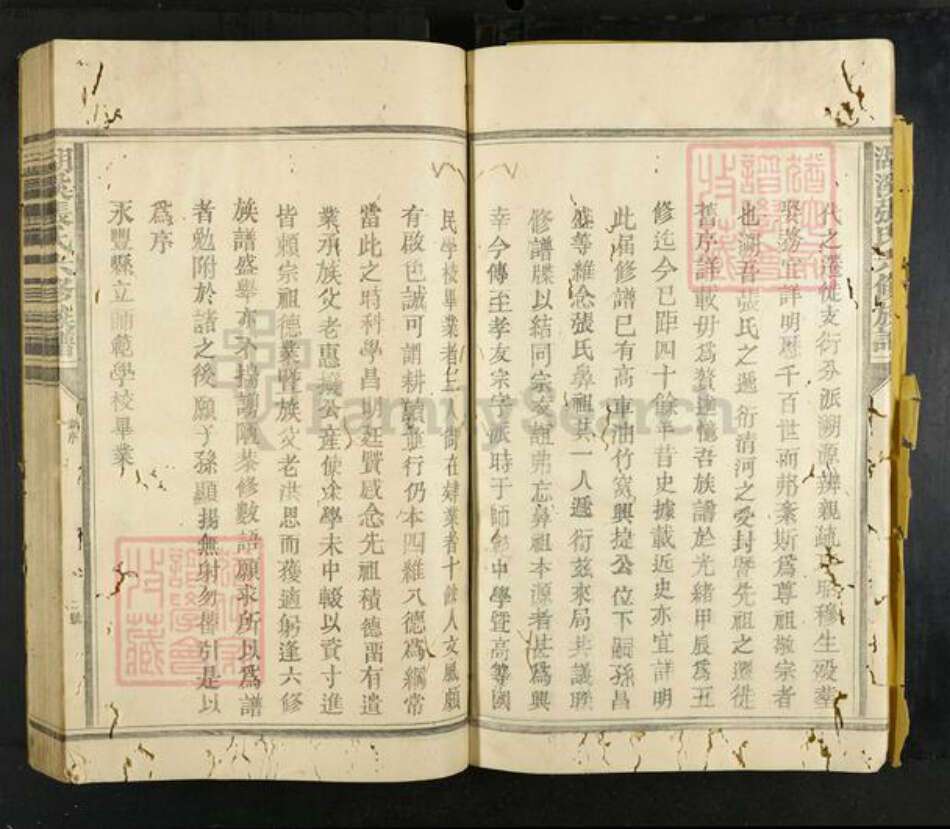 代之遷徙支衍分派溯源辨親疏昭穆生歿塋
聚務宜詳明歷千百世而弗紊斯為尊祖敬宗者
也湖吾張氏之遞衍清河之受封暨先祖之遷徙
舊序詳載毋為贅述憶吾族譜於光緒甲辰為五
修迄今已距四十餘年昔史據載近史亦宜詳明
此届修譜已有高車油竹窩興捷公位下嗣孫昌
盛等維念張氏鼻祖共一人遞衍茲來局共議聯
修譜牒以結同宗友誼弗忘鼻祖本源者甚為興
幸今傳至孝友宗字派時于師範中學暨高等國
民學校畢業者二人尚在肄業者十餘人文風頗
有啟色誠可謂耕讀並行仍本四維八德為綱常
當此之時科學昌明廷賢感念先祖積德留有遺
業承族父老惠撥公産使余學未中輟以資寸進
皆賴宗祖德業暨族父老洪恩而獲適躬逢六修
族譜盛舉亦不揣譾陋恭修數語願求所以為譜
者勉附於諸之後願子孫顯揚無射勿替引是以
為序
永豐縣立師範學校畢業
張氏六修族譜
二號
譜學會
收藏
FamilySearch